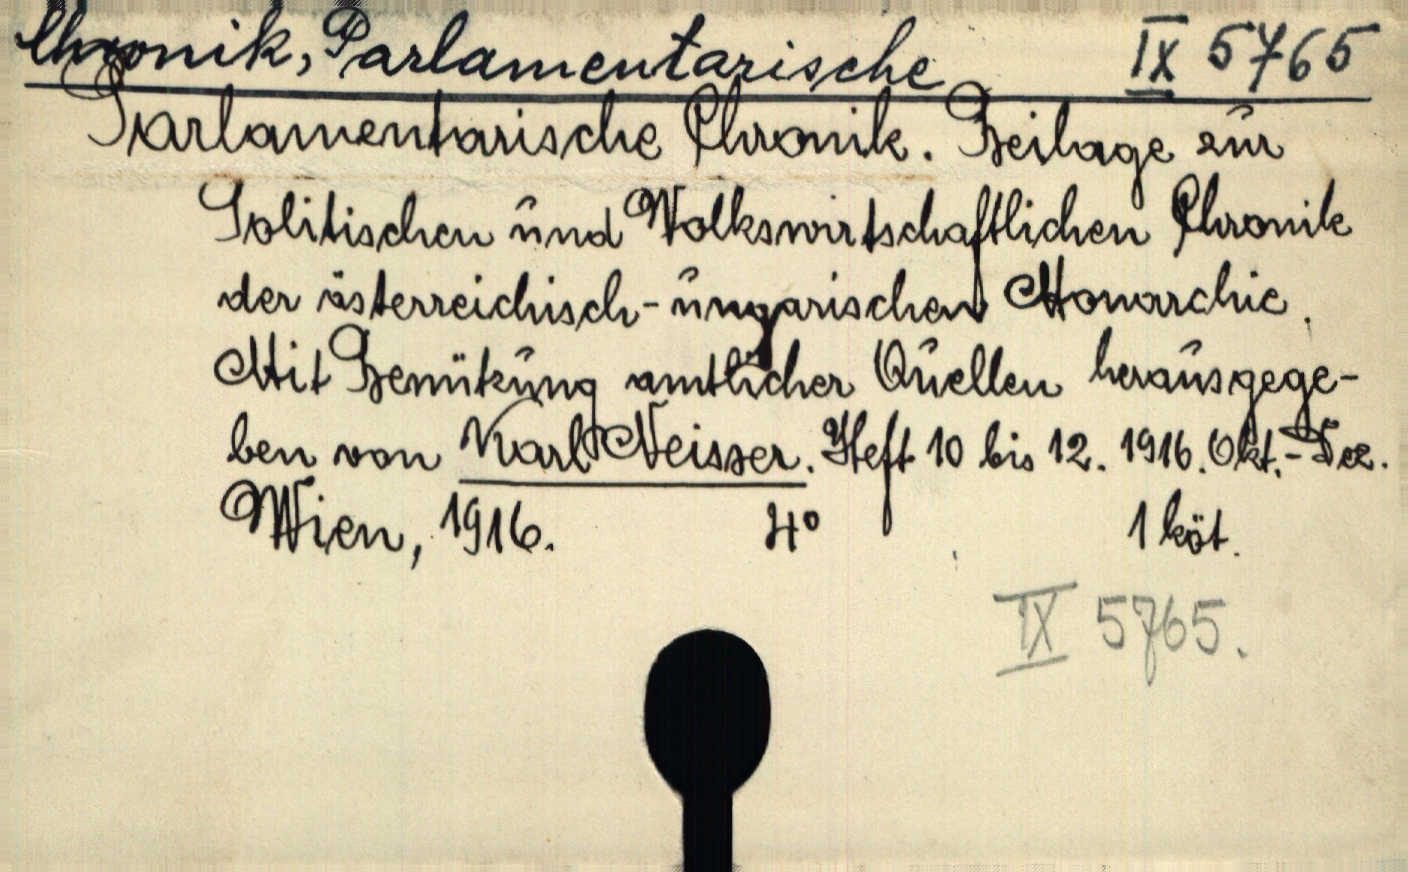 Chronik, Parlamentarische IX 5765
Parlamentarische Chronik. Beilage zur
Politischen und Volkswirtschaftlichen Chronik
der österreichisch-ungarischen Monarchie.
Mit Benützung amtlicher Quellen herausgege-
ben von Karl Neisser. Heft 10 bis 12. 1916. Okt.-Dez.
Wien, 1916. 4° 1 köt.
IX 5765.